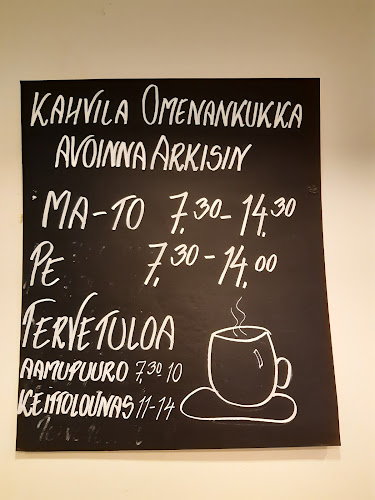 KAHVILA OMENANKUKKA
AVOINNA ARKISIN
MA-TO 7.30-14.30
PE 7.30-14.00
TERVETULOA
AAMUPUURO 7.30 10
KEITTOLOUNAS 11-14